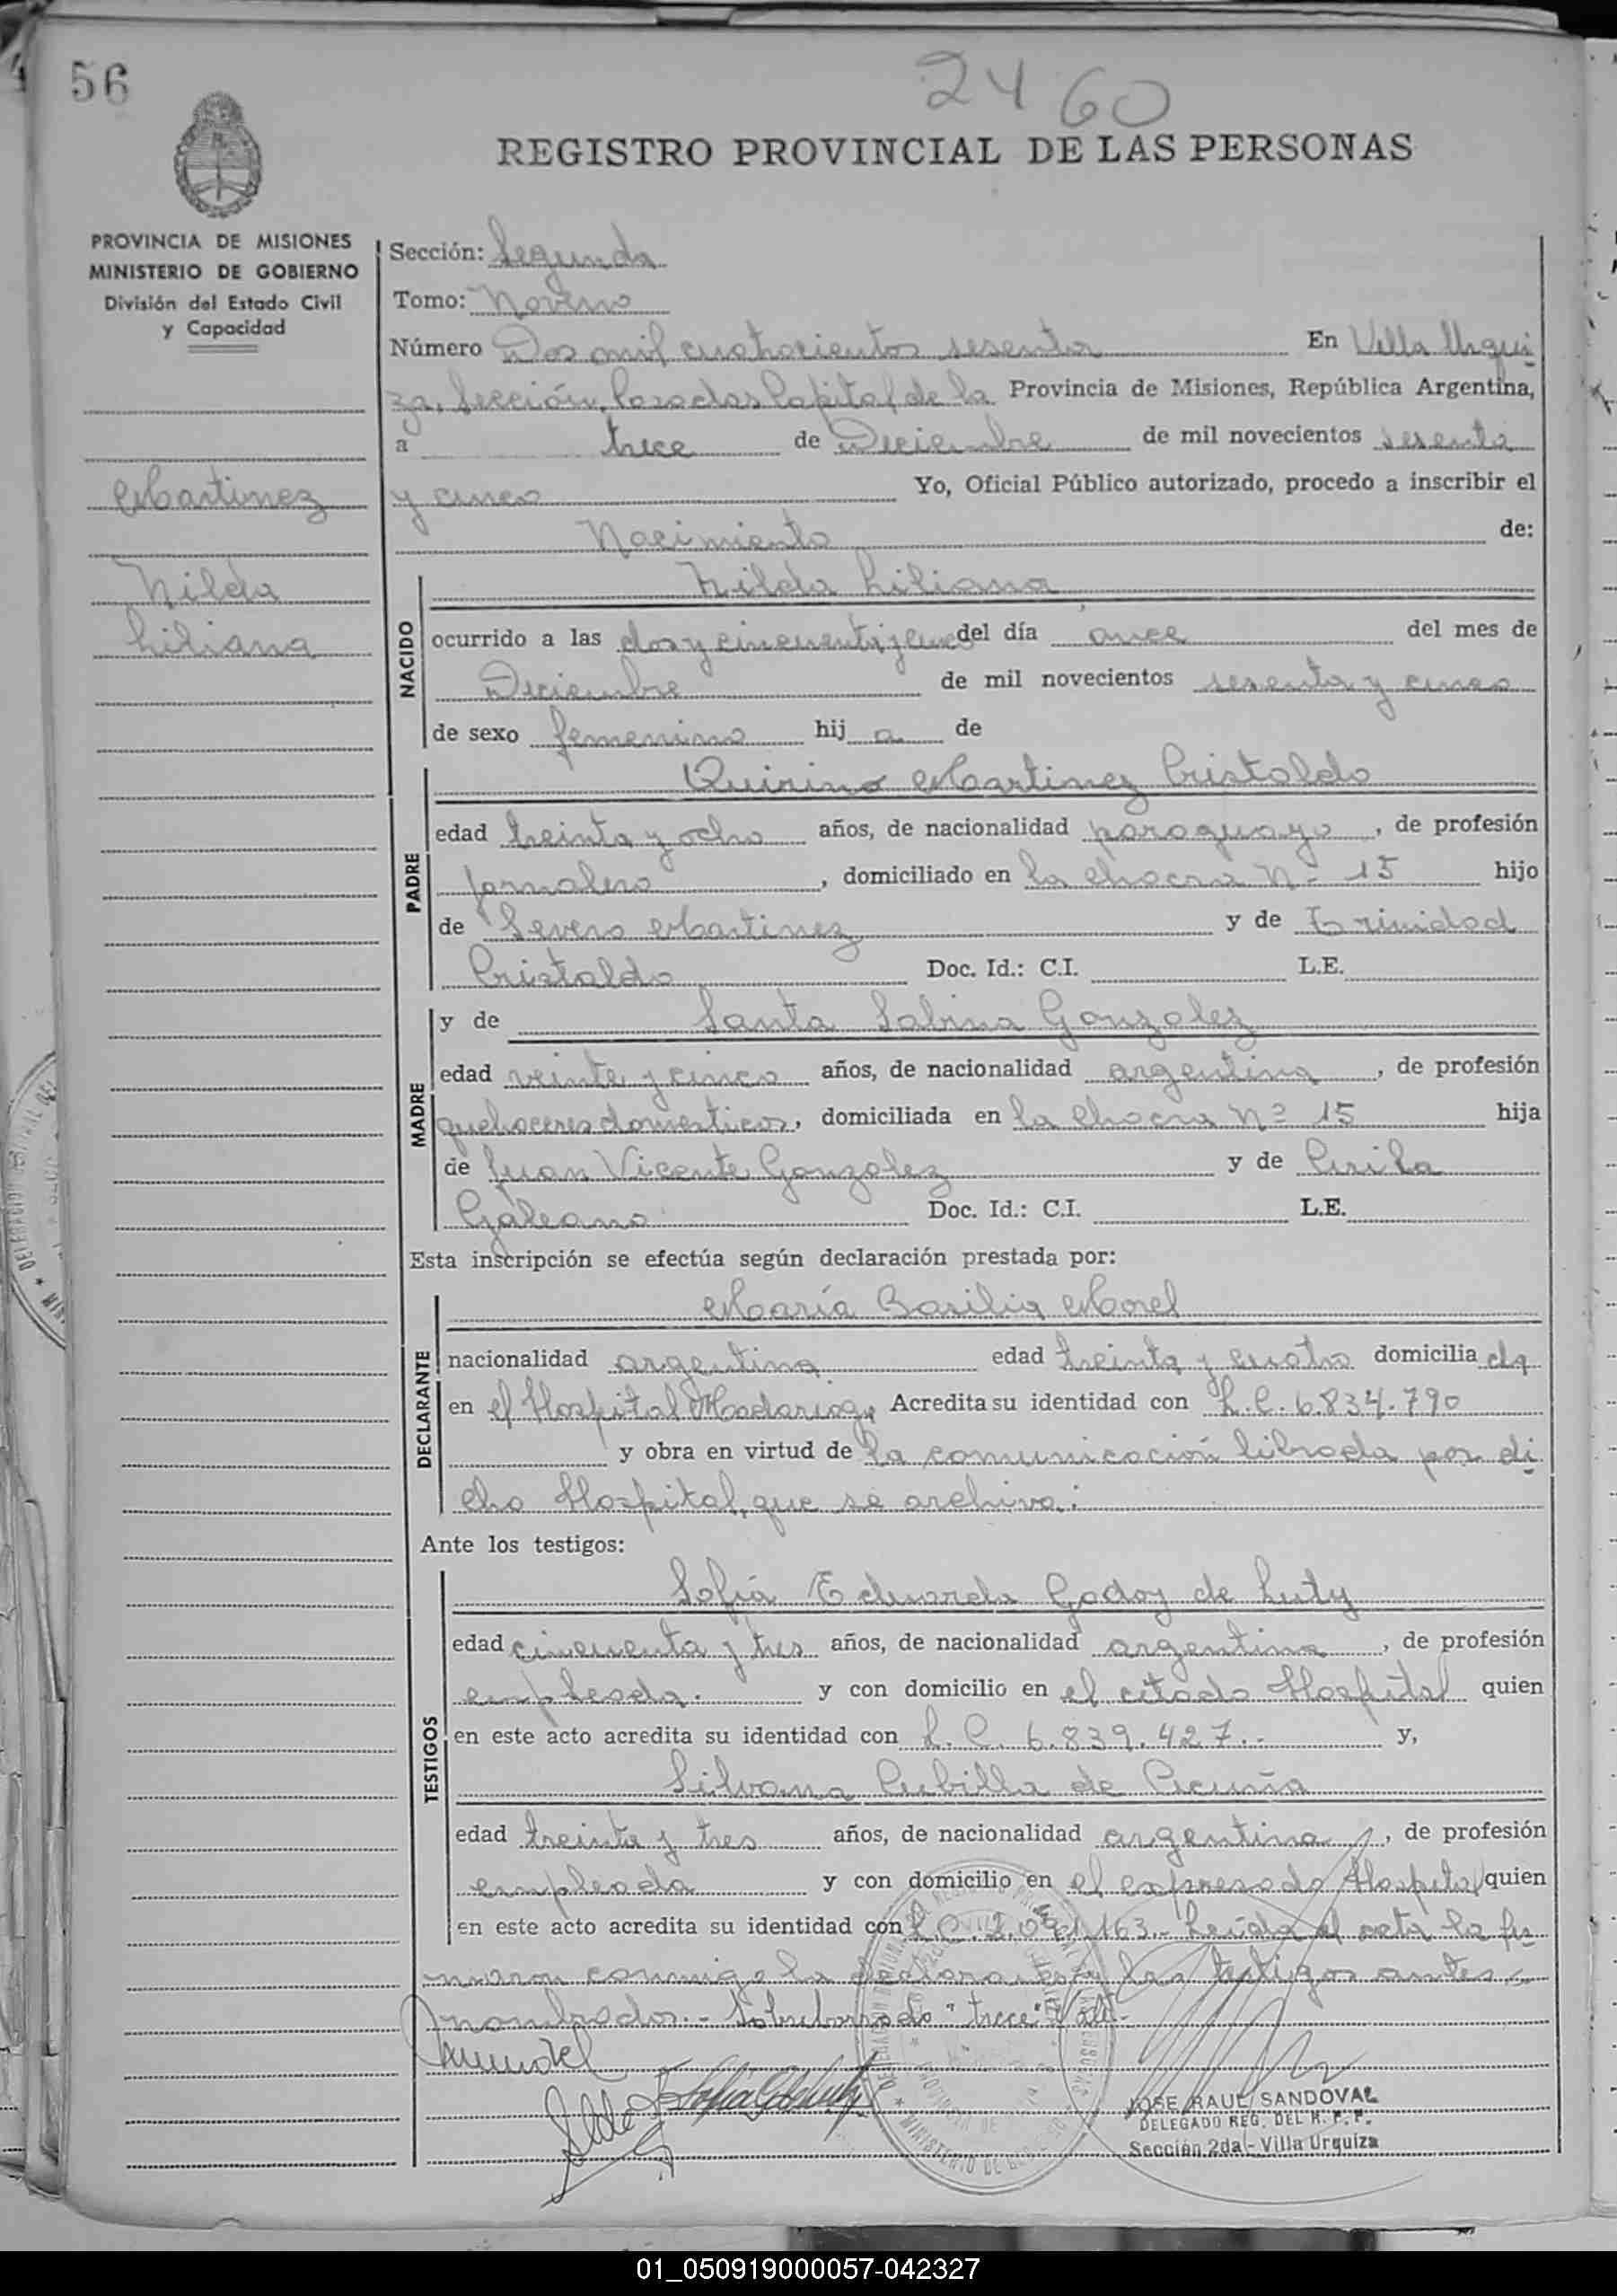 56
2460
REGISTRO PROVINCIAL DE LAS PERSONAS
PROVINCIA DE MISIONES
MINISTERIO DE GOBIERNO
División del Estado Civil
y Capacidad
Martinez
Nilda
Liliana
Sección: Segunda
Tomo: Noveno
Número Dos mil cuatrocientos sesenta En Villa Urqui
za, Sección, Posadas Capital de la Provincia de Misiones, República Argentina,
a trece de Diciembre de mil novecientos sesenta
y cinco Yo, Oficial Público autorizado, procedo a inscribir el
Nacimiento de:
NACIDO
Nilda Liliana
ocurrido a las dos y cincuenta y cinco del día once del mes de
Diciembre de mil novecientos sesenta y cinco
de sexo femenino hij a de
PADRE
Quirino Martinez Cristaldo
edad treinta y ocho años, de nacionalidad paraguayo, de profesión
jornalero, domiciliado en la chacra Nº 15 hijo
de Severo Martinez y de Trinidad
Cristaldo Doc. Id.: C.I. L.E.
MADRE
y de Santa Sabina Gonzalez
edad veinte y cinco años, de nacionalidad argentina, de profesión
quehaceres domesticos, domiciliada en la chacra Nº 15 hija
de Juan Vicente Gonzalez y de Cirila
Galeano Doc. Id.: C.I. L.E.
Esta inscripción se efectúa según declaración prestada por:
DECLARANTE
María Basilia Morel
nacionalidad argentina edad treinta y cuatro domicilia da
en el Hospital Madariaga Acredita su identidad con L.C. 6.834.790
y obra en virtud de la comunicación librada por di
cho Hospital, que se archiva.
Ante los testigos:
TESTIGOS
Sofía Eduarda Godoy de Luty
edad cincuenta y tres años, de nacionalidad argentina, de profesión
empleada. y con domicilio en el citado Hospital quien
en este acto acredita su identidad con L.C. 6.839.427.- y,
Silvana Cubilla de Acuña
edad treinta y tres años, de nacionalidad argentina, de profesión
empleada y con domicilio en el expresado Hospital quien
en este acto acredita su identidad con L.C. Leída el acta la fir
maron conmigo la declarante y las testigos antes
nombrados.- Sobreborrado "trece" Vale.-
JOSE RAUL SANDOVAL
DELEGADO REG. DEL R. P. P.
Sección 2da - Villa Urquiza
01_050919000057-042327